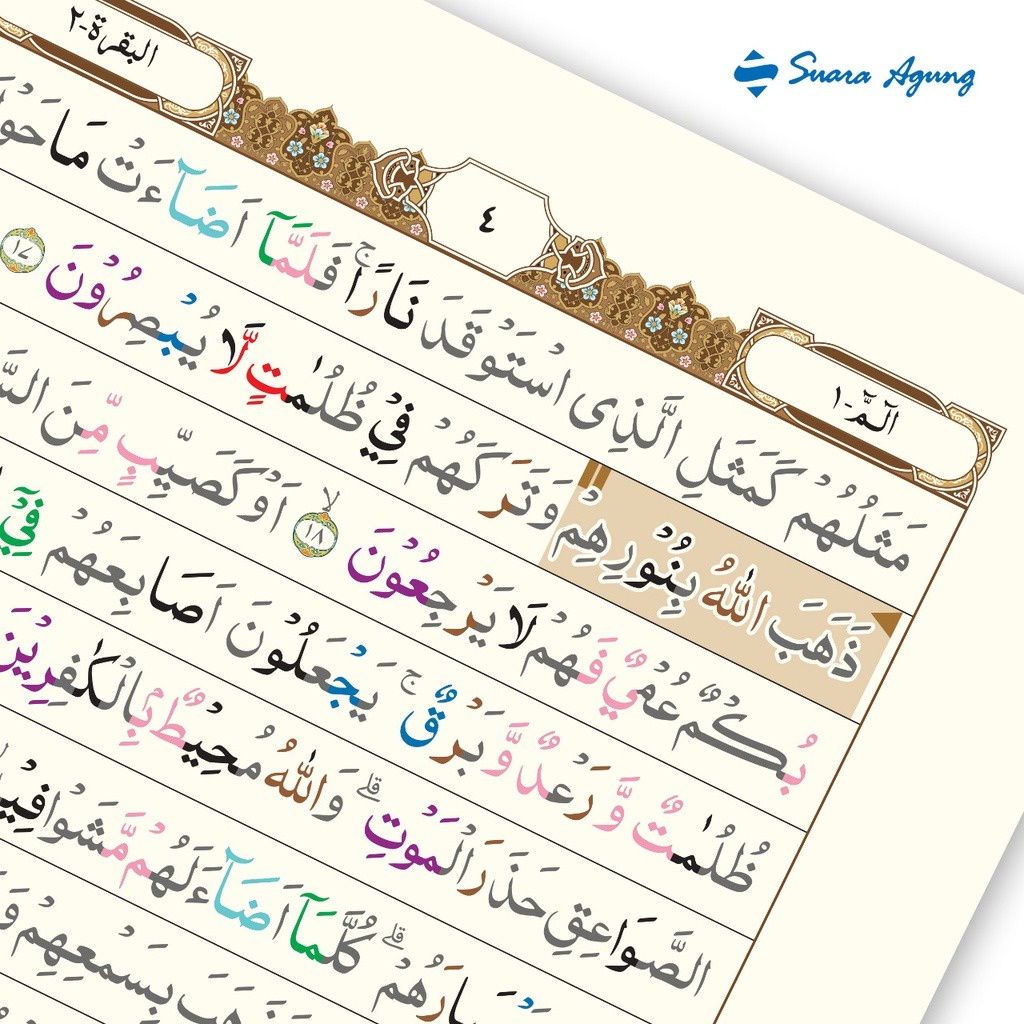 Suara Agung
البقرة-٢
٤
الٓمّٓ-١
مَثَلُهُمْ كَمَثَلِ الَّذِى اسْتَوْقَدَ نَارًاۚ فَلَمَّآ اَضَاۤءَتْ مَا
ذَهَبَ اللّٰهُ بِنُوْرِهِمْ وَتَرَكَهُمْ فِيْ ظُلُمٰتٍ لَّا يُبْصِرُوْنَ ١٧
بُكْمٌ عُمْيٌ فَهُمْ لَا يَرْجِعُوْنَ ۙ ١٨ اَوْ كَصَيِّبٍ مِّنَ
ظُلُمٰتٌ وَّرَعْدٌ وَّبَرْقٌۚ يَجْعَلُوْنَ اَصَابِعَهُمْ فِيْٓ
الصَّوَاعِقِ حَذَرَ الْمَوْتِۗ وَاللّٰهُ مُحِيْطٌۢ بِالْكٰفِرِيْنَ
اَبْصَارَهُمْۗ كُلَّمَآ اَضَاۤءَ لَهُمْ مَّشَوْا
بِسَمْعِهِمْ